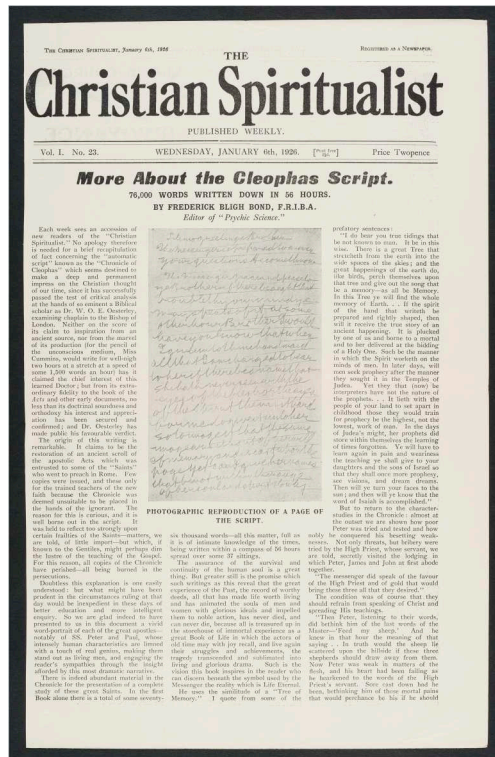 THE CHRISTIAN SPIRITUALIST, January 6th, 1926
REGISTERED AS A NEWSPAPER.
THE
Christian Spiritualist
PUBLISHED WEEKLY.
Vol. I. No. 23.
WEDNESDAY, JANUARY 6th, 1926.
Price Twopence
More About the Cleophas Script.
76,000 WORDS WRITTEN DOWN IN 56 HOURS.
BY FREDERICK BLIGH BOND, F.R.I.B.A.
Editor of "Psychic Science."
Each week sees an accession of
new readers of the "Christian
Spiritualist." No apology therefore
is needed for a brief recapitulation
of fact concerning the "automatic
script" known as the "Chronicle of
Cleophas" which seems destined to
make a deep and permanent
impress on the Christian thought
of our time, since it has successfully
passed the test of critical analysis
at the hands of so eminent a Biblical
scholar as Dr. W. O. E. Oesterley,
examining chaplain to the Bishop of
London. Neither on the score of
its claim to inspiration from an
ancient source, nor from the marvel
of its production (for the pencil of
the unconscious medium, Miss
Cummins, would write for well-nigh
two hours at a stretch at a speed of
some 1,500 words an hour) has it
claimed the chief interest of this
learned Doctor; but from its extra-
ordinary fidelity to the book of the
Acts and other early documents, no
less than its doctrinal soundness and
orthodoxy his interest and appreci-
ation has been secured and
confirmed; and Dr. Oesterley has
made public his favourable verdict.
The origin of this writing is
remarkable. It claims to be the
restoration of an ancient scroll of
the apostolic Acts which was
entrusted to some of the "Saints"
who went to preach in Rome. Few
copies were issued, and these only
for the trained teachers of the new
faith because the Chronicle was
deemed unsuitable to be placed in
the hands of the ignorant. The
reason for this is curious, and it is
well borne out in the script. It
was held to reflect too strongly upon
certain frailties of the Saints—matters, we
are told, of little import—but which, if
known to the Gentiles, might perhaps dim
the lustre of the teaching of the Gospel.
For this reason, all copies of the Chronicle
have perished—all being burned in the
persecutions.
Doubtless this explanation is one easily
understood: but what might have been
prudent in the circumstances ruling at that
day would be inexpedient in these days of
better education and more intelligent
enquiry. So we are glad indeed to have
presented to us in this document a vivid
word-portrait of each of the great apostles—
notably of SS. Peter and Paul, whose
intensely human characteristics are limned
with a touch of real genius, making them
stand out as living men, and engaging the
reader's sympathies through the insight
afforded by this most dramatic narrative.
There is indeed abundant material in the
Chronicle for the presentation of a complete
study of these great Saints. In the first
Book alone there is a total of some seventy-
PHOTOGRAPHIC REPRODUCTION OF A PAGE OF
THE SCRIPT.
six thousand words—all this matter, full as
it is of intimate knowledge of the times,
being written within a compass of 56 hours
spread over some 37 sittings.
The assurance of the survival and
continuity of the human soul is a great
thing. But greater still is the promise which
such writings as this reveal that the great
experience of the Past, the record of worthy
deeds, all that has made life worth living
and has animated the souls of men and
women with glorious ideals and impelled
them to noble action, has never died, and
can never die, because all is treasured up in
the storehouse of immortal experience as a
great Book of Life in which the actors of
old time may with joy recall, and live again
their struggles and achievements, the
tragedy transcended and sublimated into
living and glorious drama. Such is the
vision this book inspires in the reader who
can discern beneath the symbol used by the
Messenger the reality which is Life Eternal.
He uses the similitude of a "Tree of
Memory." I quote from some of the
prefatory sentences:
"I do bear you true tidings that
be not known to man. It be in this
wise. There is a great Tree that
stretcheth from the earth into the
wide spaces of the skies; and the
great happenings of the earth do,
like birds, perch themselves upon
that tree and give out the song that
be a memory—as all be Memory.
In this Tree ye will find the whole
memory of Earth. . . If the spirit
of the hand that writeth be
prepared and rightly shaped, then
will it receive the true story of an
ancient happening. It is plucked
by one of us and borne to a mortal
and to her delivered at the bidding
of a Holy One. Such be the manner
in which the Spirit worketh on the
minds of men. In later days, will
men seek prophecy after the manner
they sought it in the Temples of
Judea. Yet they that (now) be
interpreters have not the nature of
the prophets. . . It lieth with the
people of your land to set apart in
childhood those they would train
for prophecy be the highest, not the
lowest, work of man. In the days
of Judea's might, her prophets did
store within themselves the learning
of times forgotten. Ye will have to
learn again in pain and weariness
the teaching ye shall give to your
daughters and the sons of Israel so
that they shall once more prophesy,
see visions, and dream dreams.
Then will ye turn your faces to the
sun; and then will ye know that the
word of Isaiah is accomplished."
But to return to the character-
studies in the Chronicle: almost at
the outset we are shewn how poor
Peter was tried and tested and how
nobly he conquered his besetting weak-
nesses. Not only threats, but bribery were
tried by the High Priest, whose servant, we
are told, secretly visited the lodging in
which Peter, James and John at first abode
together.
"The messenger did speak of the favour
of the High Priest and of gold that would
bring these three all that they desired."
The condition was of course that they
should refrain from speaking of Christ and
spreading His teachings.
"Then Peter, listening to their words,
did bethink him of the last words of the
Master—'Feed my sheep.' And he
knew in that hour the meaning of that
saying. . In truth would the sheep lie
scattered upon the hillside if these three
shepherds should draw away from them.
Now Peter was weak in matters of the
flesh, and his heart had been failing as
he hearkened to the words of the High
Priest's servant. Sore cast down had he
been, bethinking him of those mortal pains
that would perchance be his if he should